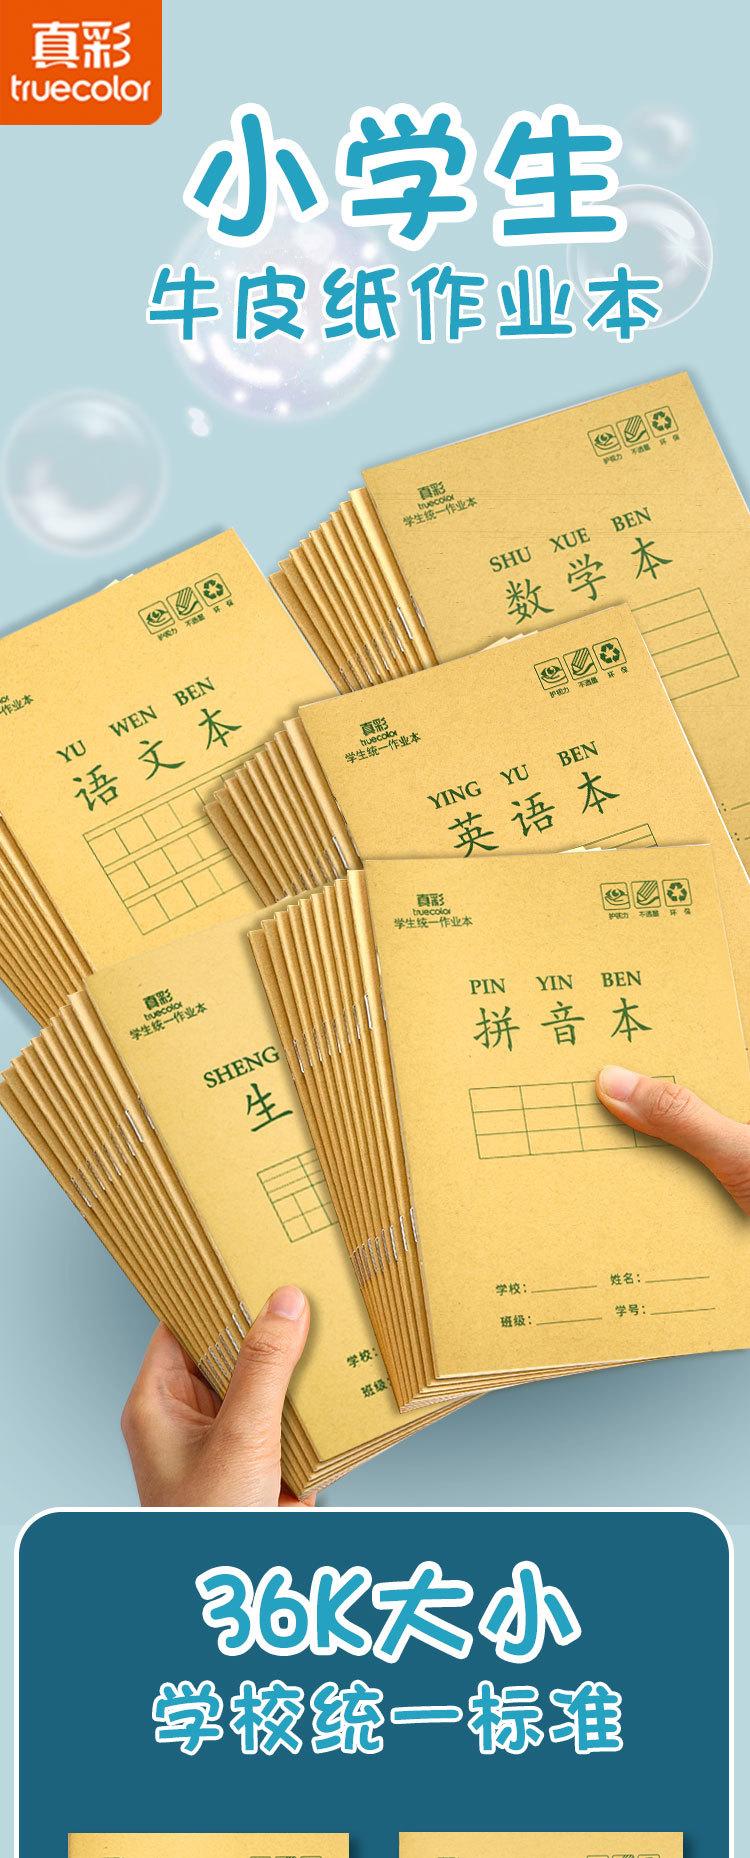 真彩
truecolor
小学生
牛皮纸作业本
真彩
truecolor
学生统一作业本
护视力 不透墨 环保
SHU XUE BEN
数学本
护视力 不透墨 环保
作业本
YU WEN BEN
语文本
护视力 不透墨 环保
真彩
truecolor
学生统一作业本
YING YU BEN
英语本
真彩
truecolor
学生统一作业本
护视力 不透墨 环保
PIN YIN BEN
拼音本
学校: 姓名:
班级: 学号:
真彩
truecolor
学生统一作业本
SHENG
生
学校:
班级:
36K大小
学校统一标准